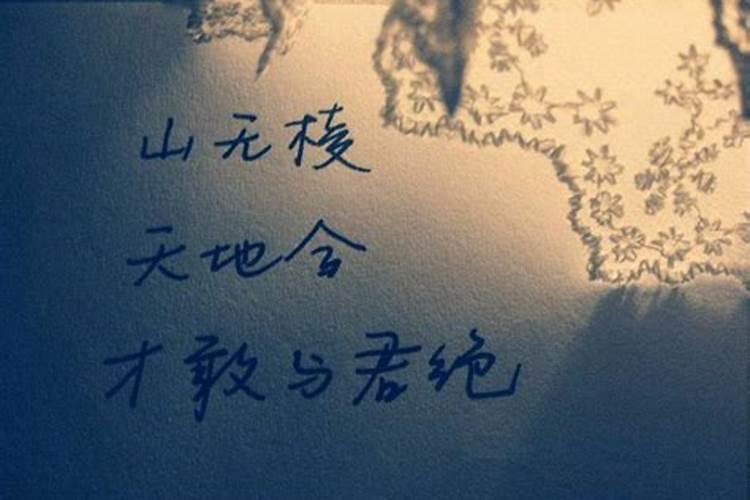 山无棱
天地合
才敢与君绝